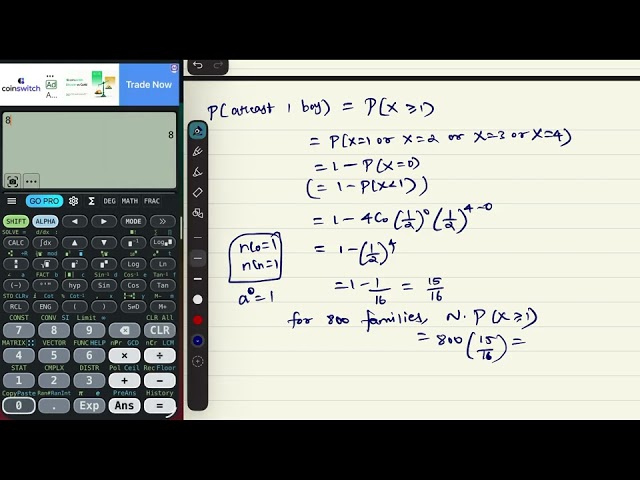 coinswitch
Ad
A...
Trade Now
8
8
GO PRO
DEG MATH FRAC
SHIFT ALPHA MODE
SOLVE = d/dx :
CALC ∫dx
Log□
CONST CONV SI Limit ∞
7 8 9 CLR
MATRIX VECTOR FUNC nPr GCD nCr LCM
4 5 6 × ÷
STAT CMPLX DISTR Pol Ceil Rec Floor
1 2 3 + −
CopyPaste Ran# RanInt π e PreAns History
0 . Exp Ans =
P(atleast 1 boy) = P(X ≥ 1)
= P(X=1 or X=2 or X=3 or X=4)
= 1 − P(X=0)
(= 1 − P(X<1))
= 1 − 4C0 (1/2)^0 (1/2)^4−0
nC0=1
nCn=1
= 1 − (1/2)^4
a^0 = 1
= 1 − 1/16 = 15/16
for 800 families, N. P(X ≥ 1)
= 800 (15/16) =